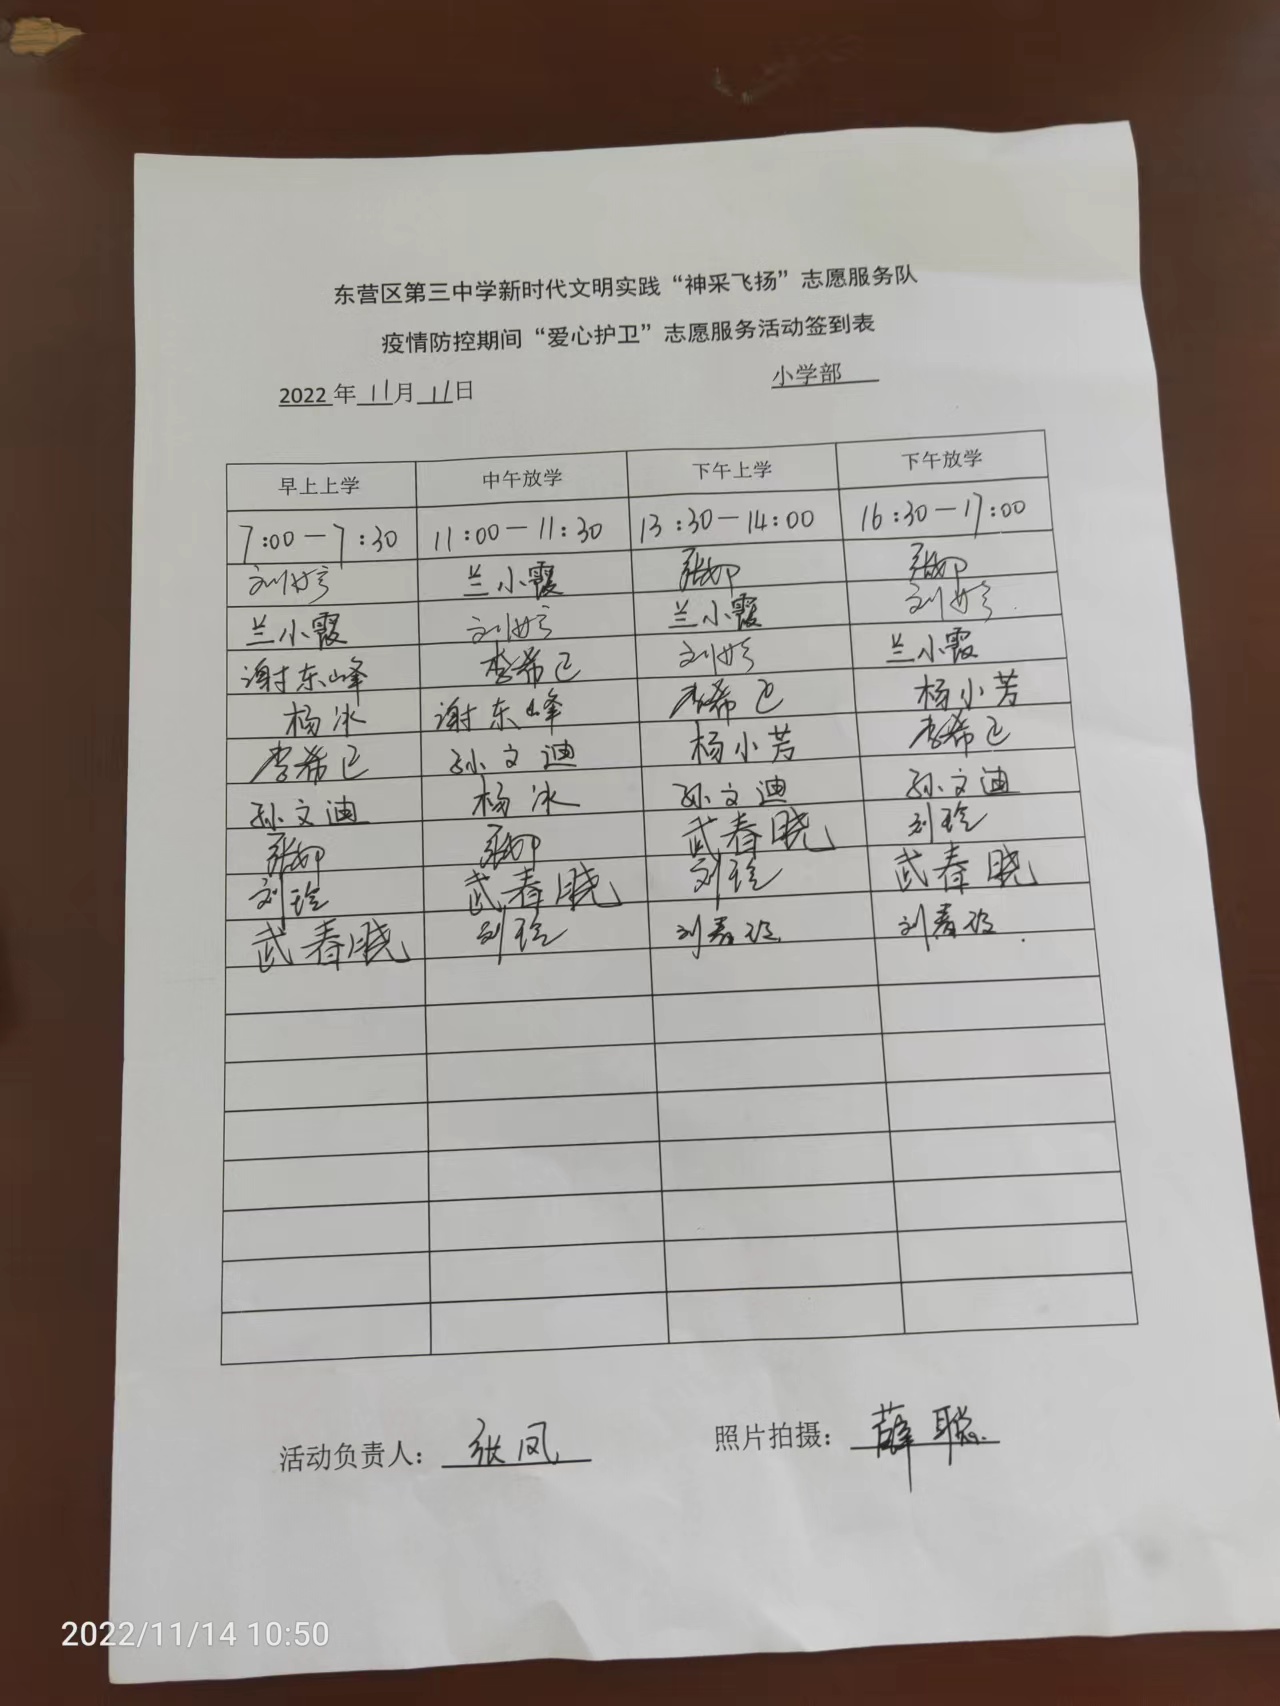 东营区第三中学新时代文明实践“神采飞扬”志愿服务队
疫情防控期间“爱心护卫”志愿服务活动签到表
2022年11月11日 小学部
早上上学 中午放学 下午上学 下午放学
7:00-7:30 11:00-11:30 13:30-14:00 16:30-17:00
兰小霞
兰小霞 兰小霞
谢东峰 李希 兰小霞
杨冰 谢东峰 李希 杨小芳
李希 孙文迪 杨小芳 李希
孙文迪 杨冰 孙文迪 孙文迪
武春晓 刘玲
刘玲 武春晓 刘玲 武春晓
武春晓 刘玲 刘春玲 刘春玲
活动负责人：张凤 照片拍摄：薛聪
2022/11/14 10:50